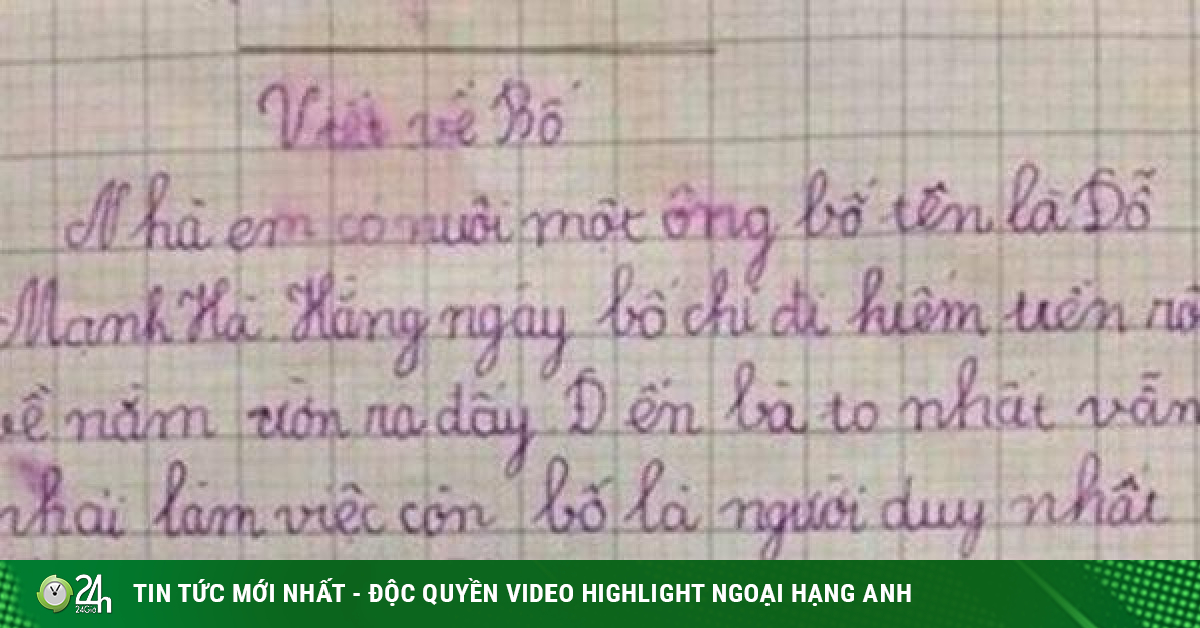 Viết về Bố
Nhà em có nuôi một ông bố tên là Đỗ
Mạnh Hà. Hằng ngày bố chỉ đi kiếm tiền rồi
về nằm ườn ra đấy Đến bà to nhất vẫn
phải làm việc còn bố là người duy nhất
24h
24Giờ
TIN TỨC MỚI NHẤT - ĐỘC QUYỀN VIDEO HIGHLIGHT NGOẠI HẠNG ANH